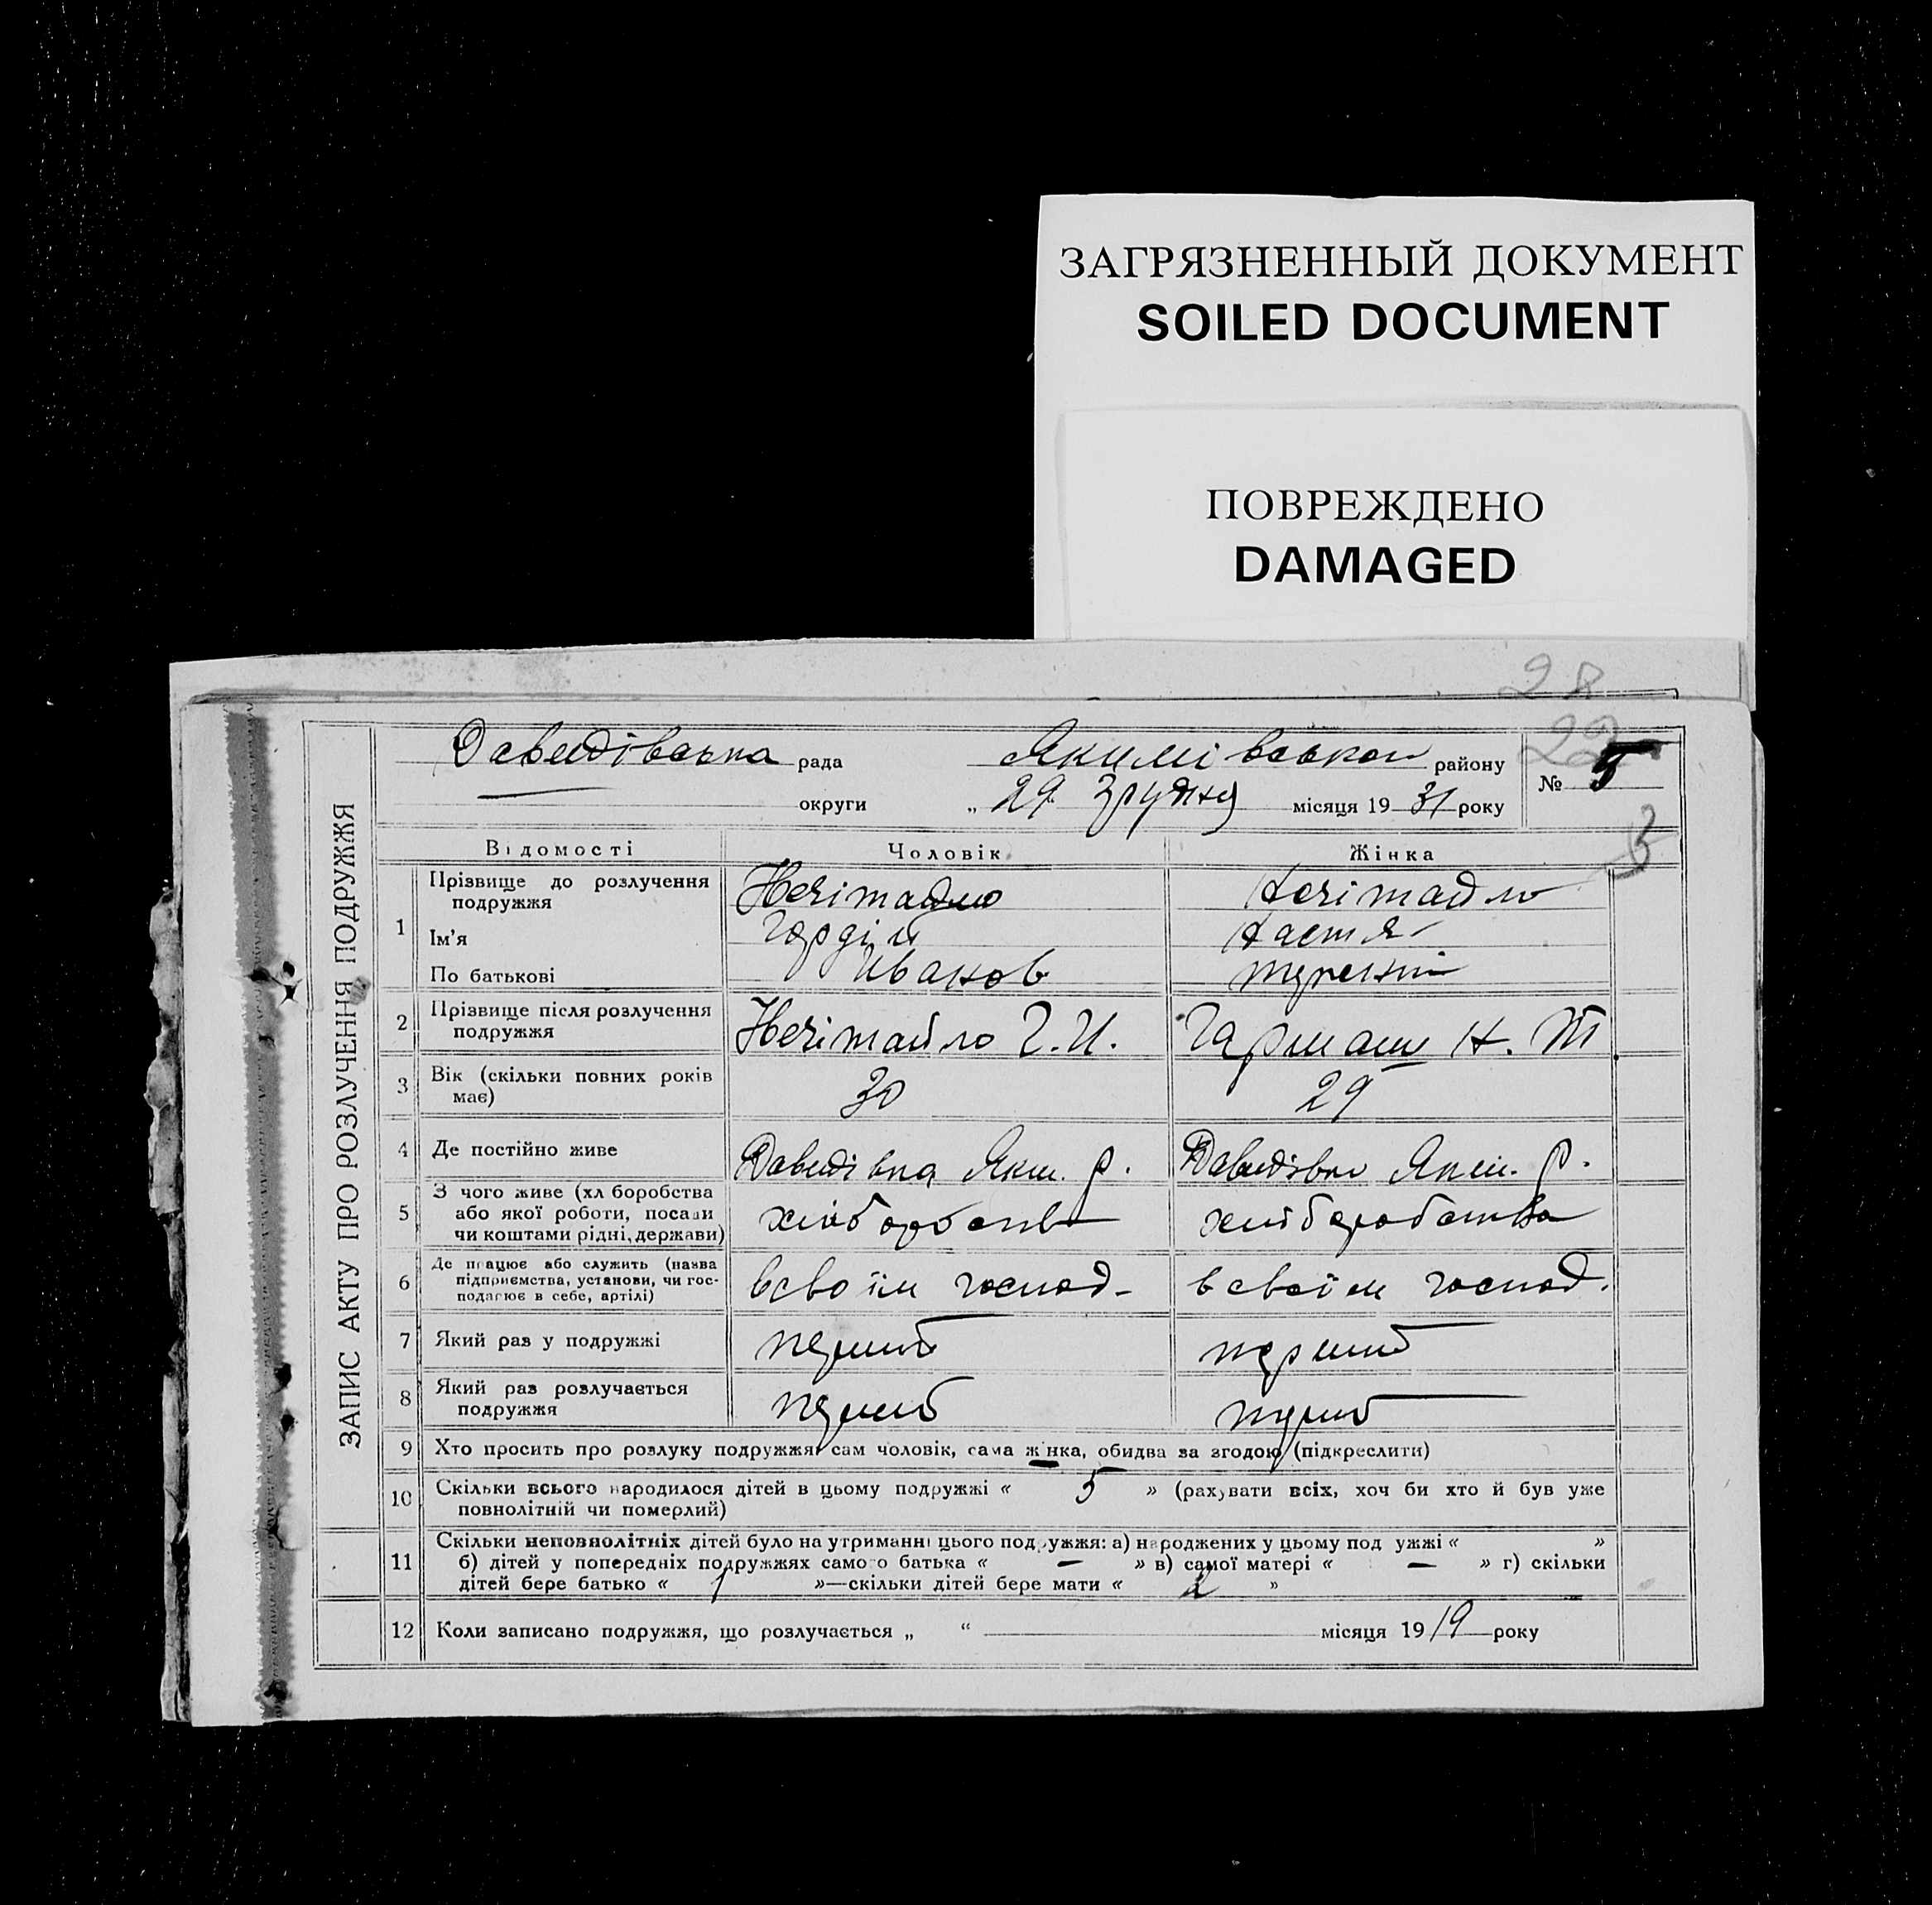 ЗАГРЯЗНЕННЫЙ ДОКУМЕНТ
SOILED DOCUMENT
ПОВРЕЖДЕНО
DAMAGED
28
22
ЗАПИС АКТУ ПРО РОЗЛУЧЕННЯ ПОДРУЖЖЯ
Давидівська рада Якимівськой району
№ 5
округи „ 29 Грудня місяця 1931 року
3
Відомості Чоловік Жінка
1 Прізвище до розлучення подружжя Нечітайло Нечітайло
Ім'я Гордій Настя
По батькові Иванов
2 Прізвище після розлучення подружжя Нечітайло Г. И. Гармаш Н. Т
3 Вік (скільки повних років має) 30 29
4 Де постійно живе Давидівка Яким. р. Давидівка Яким. р.
5 З чого живе (хл боробства або якої роботи, посади чи коштами рідні, держави) хліборобств хліборобства
6 Де працює або служить (назва підприємства, установи, чи господарює в себе, артілі) в своїм господ- в своїм господ.
7 Який раз у подружжі перший перший
8 Який раз розлучається подружжя перший перший
9 Хто просить про розлуку подружжя: сам чоловік, сама жінка, обидва за згодою (підкреслити)
10 Скільки всього народилося дітей в цьому подружжі « 5 » (рахувати всіх, хоч би хто й був уже
повнолітній чи померлий)
11 Скільки неповнолітніх дітей було на утриманні цього подружжя: а) народжених у цьому под ужжі « »
б) дітей у попередніх подружжях самого батька « — » в) самої матері « — » г) скільки
дітей бере батько « 1 »—скільки дітей бере мати « 2 »
12 Коли записано подружжя, що розлучається „ “ місяця 1919 року